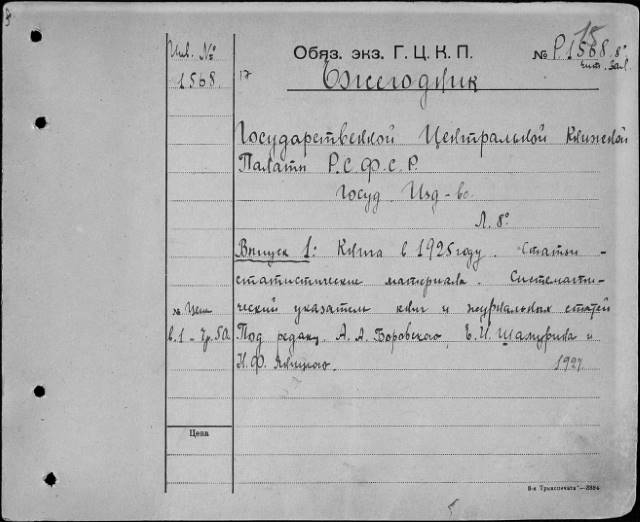 Инв. №
1568.
Обяз. экз. Г. Ц. К. П.
№ Р.1568 8°
15
чит. зал.
17
Ежегодник
Государственной Центральной Книжной
Палаты Р.С.Ф.С.Р.
Госуд. Изд-во.
Л. 8°
Выпуск 1: Книга в 1925 году. Статьи -
статистические материалы. Системати-
ческий указатель книг и журнальных статей
Под редакц. А. А. Боровского, Е. И. Шамурина и
Н. Ф. Яницкого. 1927.
№ Цена
в.1 - 7р.50.
Цена
8-я Трансвечать"—3884